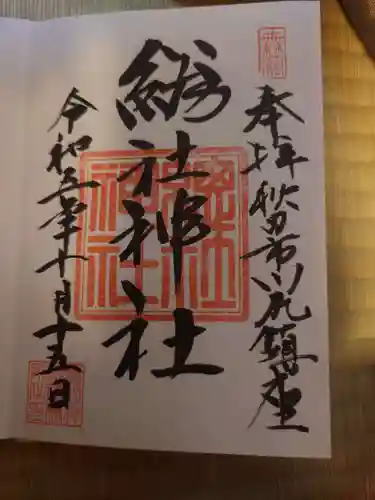 奉拝 秋田市川尻鎮座
総社神社
令和五年十月十五日
總社神社